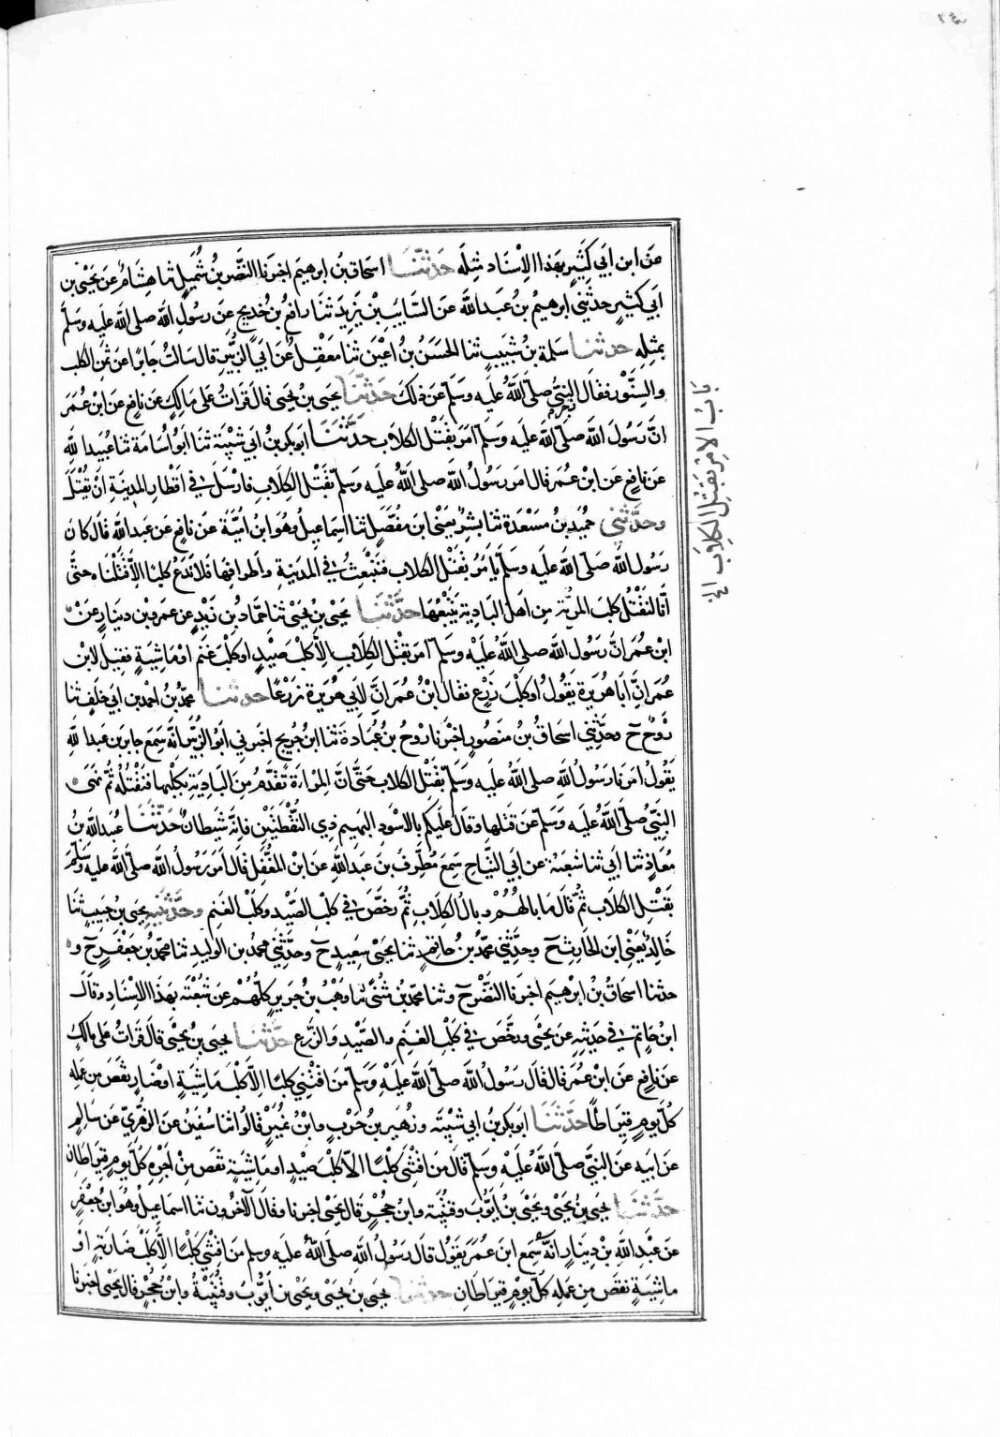 عن ابن ابي كثير بهذا الاسناد مثله حدثنا اسحاق بن ابرهيم اخبرنا النضر بن شميل ثنا هشام عن يحيى بن
ابي كثير حدثني ابرهيم بن عبدالله عن السايب بن يزيد ثنا رافع بن خديج عن رسول الله صلى الله عليه وسلم
بمثله حدثنا سلمة بن شبيب ثنا الحسن بن اعين ثنا معقل عن ابي الزبير قال سالت جابرا عن ثمن الكلب
والسنور فقال النبي صلى الله عليه وسلم عن ذلك حدثنا يحيى بن يحيى قال قرات على مالك عن نافع عن ابن عمر
ان رسول الله صلى الله عليه وسلم امر بقتل الكلاب حدثنا ابوبكر بن ابي شيبة ثنا ابو اسامة ثنا عبيد الله
عن نافع عن ابن عمر قال امر رسول الله صلى الله عليه وسلم بقتل الكلاب فارسل في اقطار المدينة ان تقتل
وحدثني حميد بن مسعدة ثنا بشر يعني ابن مفضل ثنا اسماعيل وهو ابن امية عن نافع عن عبدالله قال كان
رسول الله صلى الله عليه وسلم يامر بقتل الكلاب فننبعث في المدينة واطرافها فلا ندع كلبا الا قتلناه حتى
انا لنقتل كلب المرية من اهل البادية يتبعها حدثنا يحيى بن يحيى ثنا حماد بن زيد عن عمرو بن دينار عن
ابن عمر ان رسول الله صلى الله عليه وسلم امر بقتل الكلاب الا كلب صيد او كلب غنم او ماشية فقيل لابن
عمر ان ابا هريرة يقول او كلب زرع فقال ابن عمر ان لابي هريرة زرعا حدثنا محمد بن احمد بن ابي خلف ثنا
روح ح وحدثني اسحاق بن منصور اخبرنا روح بن عبادة ثنا ابن جريج اخبرني ابو الزبير انه سمع جابر بن عبدالله
يقول امرنا رسول الله صلى الله عليه وسلم بقتل الكلاب حتى ان المراة تقدم من البادية بكلبها فنقتله ثم نهى
النبي صلى الله عليه وسلم عن قتلها وقال عليكم بالاسود البهيم ذي النقطتين فانه شيطان حدثنا عبيدالله بن
معاذ ثنا ابي ثنا شعبة عن ابي التياح سمع مطرف بن عبدالله عن ابن المغفل قال امر رسول الله صلى الله عليه وسلم
بقتل الكلاب ثم قال ما بالهم وبال الكلاب ثم رخص في كلب الصيد وكلب الغنم وحدثنيه يحيى بن حبيب ثنا
خالد يعني ابن الحارث ح وحدثني محمد بن حاتم ثنا يحيى سعيد ح وحدثني محمد بن الوليد ثنا محمد بن جعفر ح و
حدثنا اسحاق بن ابرهيم اخبرنا النضر ح وثنا محمد بن مثنى ثنا وهب بن جرير كلهم عن شعبة بهذا الاسناد وقال
ابن حاتم في حديثه عن يحيى ورخص في كلب الغنم والصيد والزرع حدثنا يحيى بن يحيى قال قرات على مالك
عن نافع عن ابن عمر قال قال رسول الله صلى الله عليه وسلم من اقتنى كلبا الا كلب ماشية او ضار نقص من عمله
كل يوم قيراطا حدثنا ابوبكر بن ابي شيبة وزهير بن حرب وابن نمير قالوا ثنا سفين عن الزهري عن سالم
عن ابيه عن النبي صلى الله عليه وسلم قال من اقتنى كلبا الا كلب صيد او ماشية نقص من اجره كل يوم قيراطان
حدثنا يحيى بن يحيى ويحيى بن ايوب وقتيبة وابن حجر قال يحيى اخبرنا وقال الآخرون ثنا اسماعيل وهو ابن جعفر
عن عبدالله بن دينار انه سمع ابن عمر يقول قال رسول الله صلى الله عليه وسلم من اقتنى كلبا الا كلب ضارية او
ماشية نقص من عمله كل يوم قيراطان حدثنا يحيى بن يحيى ويحيى بن ايوب وقتيبة وابن حجر قال يحيى اخبرنا
باب الامر بقتل الكلاب